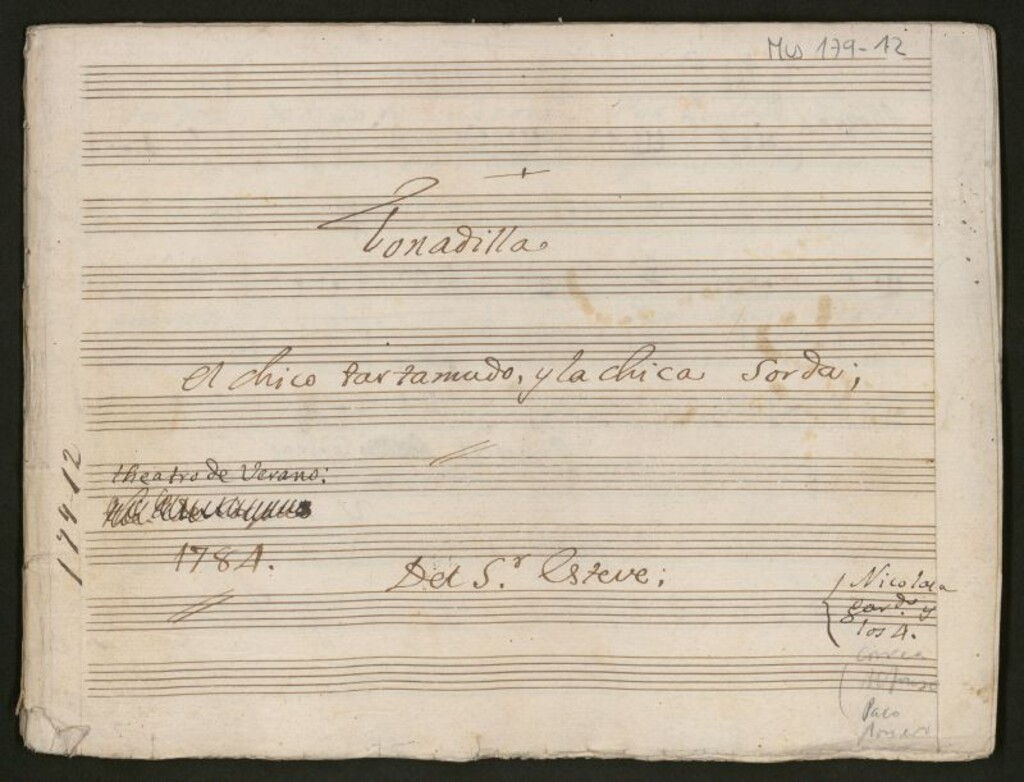 Mus 179-12
Tonadilla
el chico tartamudo, y la chica sorda;
174-12
theatro de Verano:
1784.
Del S.r Esteve;
Nicolasa
gar.do y
los 4.
Correa
Paco